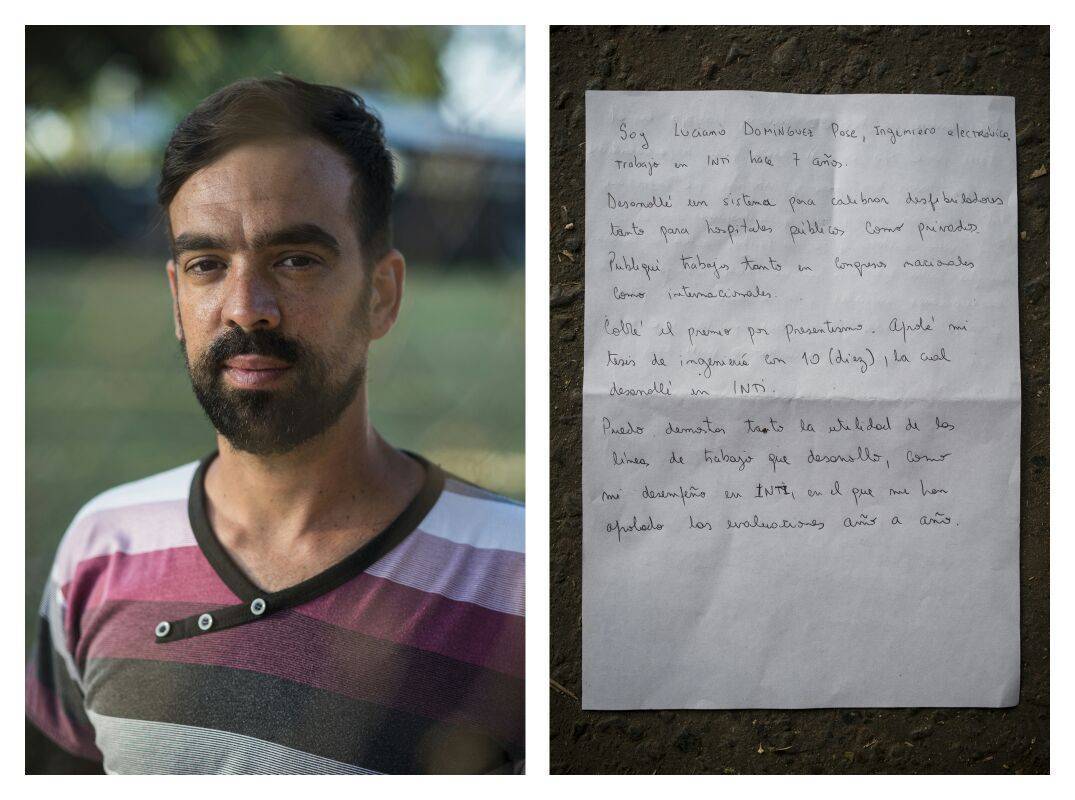 Soy Luciano Dominguez Pose, Ingeniero electrónico,
trabajo en INTI hace 7 años.
Desarrollé un sistema para calibrar desfibriladores
tanto para hospitales públicos como privados.
Publiqué trabajos tanto en congresos nacionales
como internacionales.
Cobré el premio por presentismo. Aprobé mi
tesis de ingeniería con 10 (diez), la cual
desarrollé en INTI.
Puedo demostrar tanto la utilidad de las
líneas de trabajo que desarrollo, como
mi desempeño en INTI, en el que me han
aprobado las evaluaciones año a año.